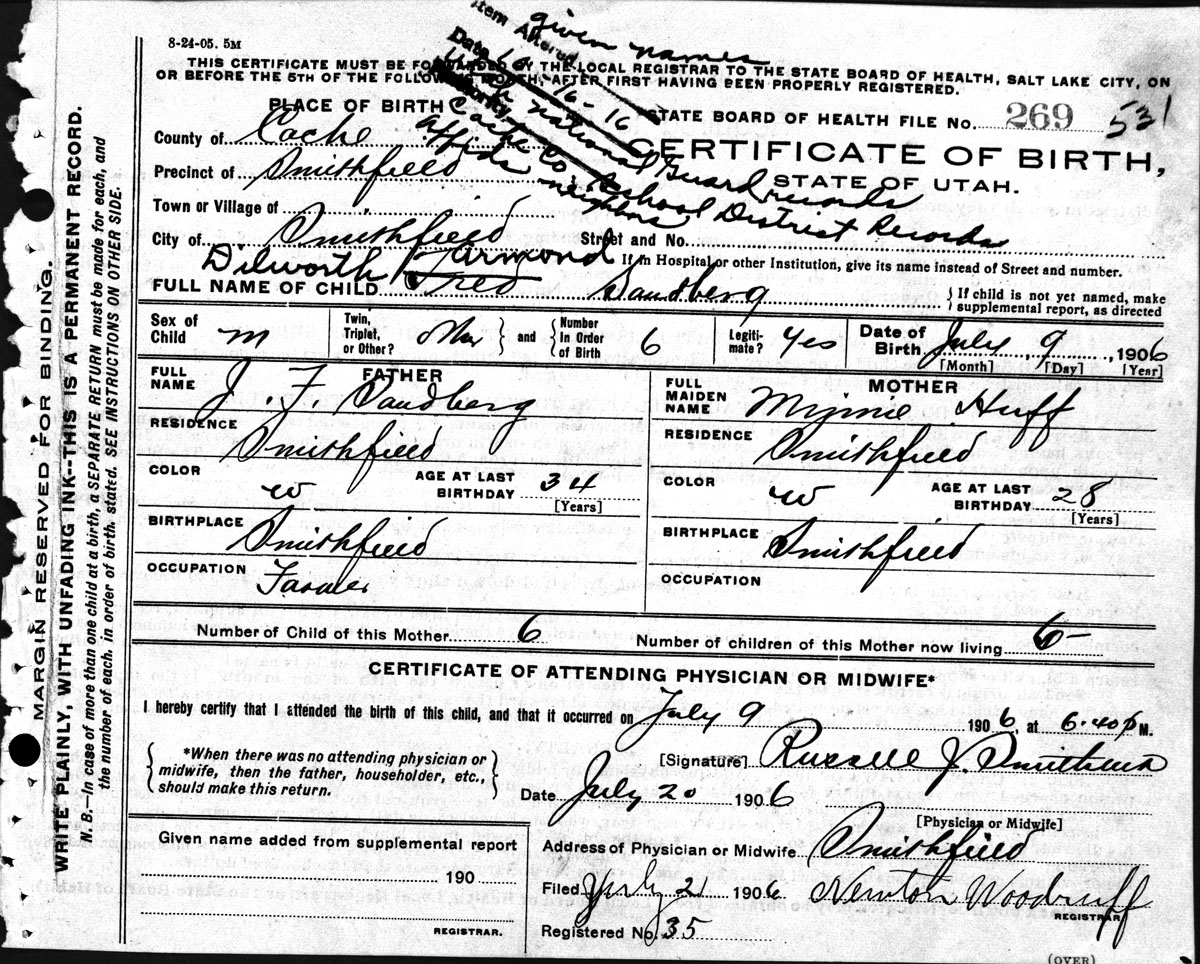 8-24-05. 5M
Item Altered given names
THIS CERTIFICATE MUST BE FORWARDED BY THE LOCAL REGISTRAR TO THE STATE BOARD OF HEALTH, SALT LAKE CITY, ON
OR BEFORE THE 5TH OF THE FOLLOWING MONTH, AFTER FIRST HAVING BEEN PROPERLY REGISTERED.
Date 16
National Guard records
Cache Co School District Records
neighbors
PLACE OF BIRTH
STATE BOARD OF HEALTH FILE No. 269 531
County of Cache
CERTIFICATE OF BIRTH,
Precinct of Smithfield
STATE OF UTAH.
Town or Village of
City of Smithfield Street and No.
If in Hospital or other Institution, give its name instead of Street and number.
Dilworth Farmond
FULL NAME OF CHILD Fred Sandberg
If child is not yet named, make
supplemental report, as directed
Sex of Child m
Twin, Triplet, or Other? and Number In Order of Birth 6
Legitimate? Yes
Date of Birth July 9, 1906
[Month] [Day] [Year]
FATHER
FULL NAME J. F. Sandberg
RESIDENCE Smithfield
COLOR w AGE AT LAST BIRTHDAY 34
[Years]
BIRTHPLACE Smithfield
OCCUPATION Farmer
MOTHER
FULL MAIDEN NAME Minnie Huff
RESIDENCE Smithfield
COLOR w AGE AT LAST BIRTHDAY 28
[Years]
BIRTHPLACE Smithfield
OCCUPATION
Number of Child of this Mother 6 Number of children of this Mother now living
CERTIFICATE OF ATTENDING PHYSICIAN OR MIDWIFE*
I hereby certify that I attended the birth of this child, and that it occurred on July 9 1906, at 6.40 P M.
*When there was no attending physician or
midwife, then the father, householder, etc.,
should make this return.
[Signature] Russell J. Smith
Date July 20 1906
[Physician or Midwife]
Given name added from supplemental report
190
REGISTRAR.
Address of Physician or Midwife Smithfield
Filed July 21 1906 Newton Woodruff
REGISTRAR
Registered No. 35
(OVER)
MARGIN RESERVED FOR BINDING.
WRITE PLAINLY, WITH UNFADING INK--THIS IS A PERMANENT RECORD.
N. B.—In case of more than one child at a birth, a SEPARATE RETURN must be made for each, and
the number of each, in order of birth stated. SEE INSTRUCTIONS ON OTHER SIDE.